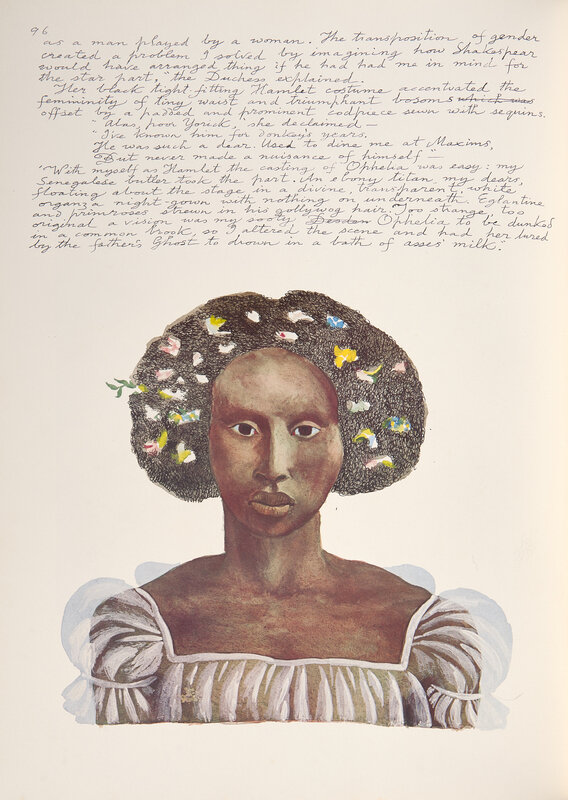 96
as a man played by a woman. The transposition of gender
created a problem I solved by imagining how Shakespear
would have arranged thing if he had had me in mind for
the star part," the Duchess explained.
Her black tight-fitting Hamlet costume accentuated the
femininity of tiny waist and triumphant bosoms which was
offset by a padded and prominent codpiece sewn with sequins.
"Alas, poor Yorick," she declaimed —
"I've known him for donkey's years.
He was such a dear. Used to dine me at Maxims,
But never made a nuisance of himself" —
"With myself as Hamlet the casting of Ophelia was easy: my
Senegalese butler took the part. An ebony titan my dears,
floating about the stage in a divine, transparent, white
organza night-gown with nothing on underneath. Eglantine
and primroses strewn in his gollywog hair. Too strange, too
original a vision was my sooty Ophelia to be dunked
in a common brook, so I altered the scene and had her lured
by the father's Ghost to drown in a bath of asses' milk".